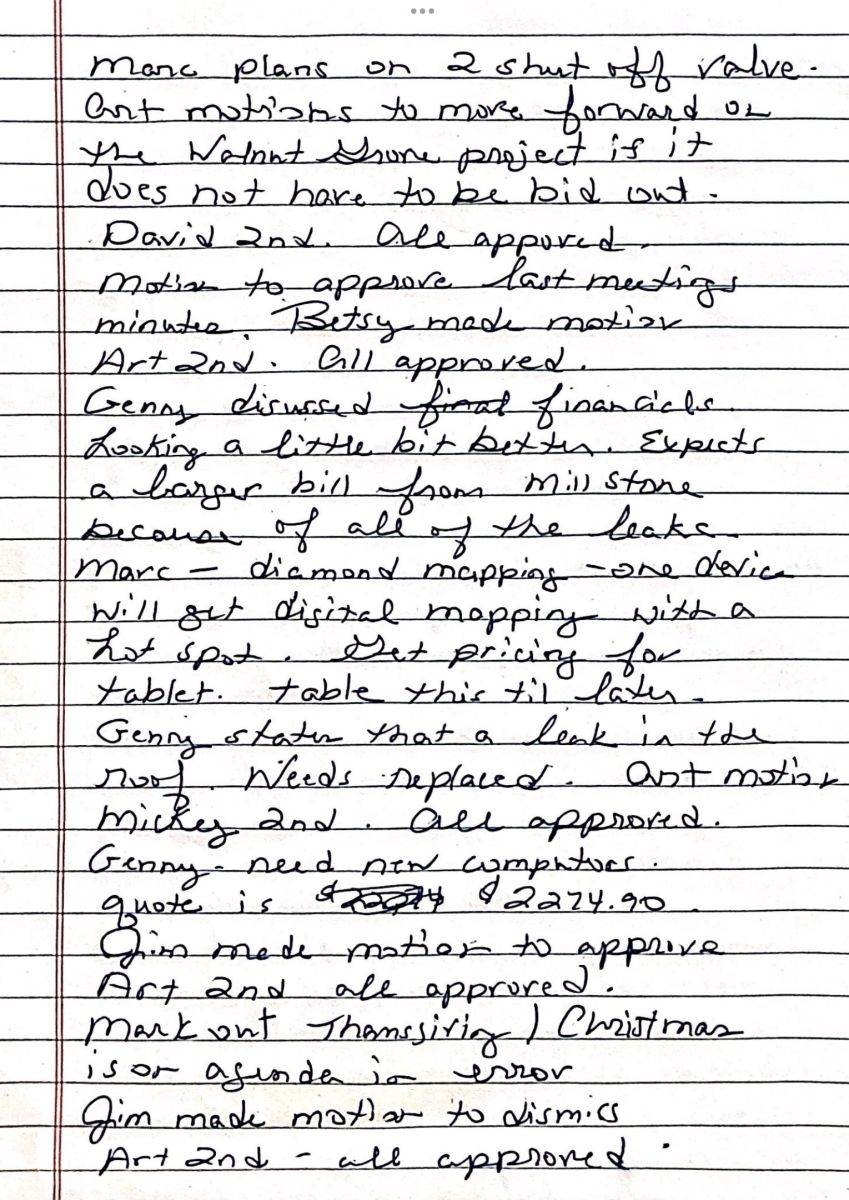 Marc plans on 2 shut off valve.
Art motions to move forward on
the Walnut Grove project if it
does not have to be bid out.
David 2nd. All appoved.
Motion to approve last meetings
minutes. Betsy made motion
Art 2nd. All approved.
Genny disussed final financials.
Looking a little bit better. Expects
a larger bill from Mill stone
because of all of the leaks.
Marc - diamond mapping - one device
will get digital mapping with a
hot spot. Get pricing for
tablet. table this til later.
Genny states that a leak in the
roof. Needs replaced. Art motion
Mickey 2nd. All approved.
Genny - need new computors.
quote is $2274.90
Jim made motion to approve
Art 2nd all approved.
Mark out Thanssiving / Christmas
is on agenda in error
Jim made motion to dismiss
Art 2nd - all approved.